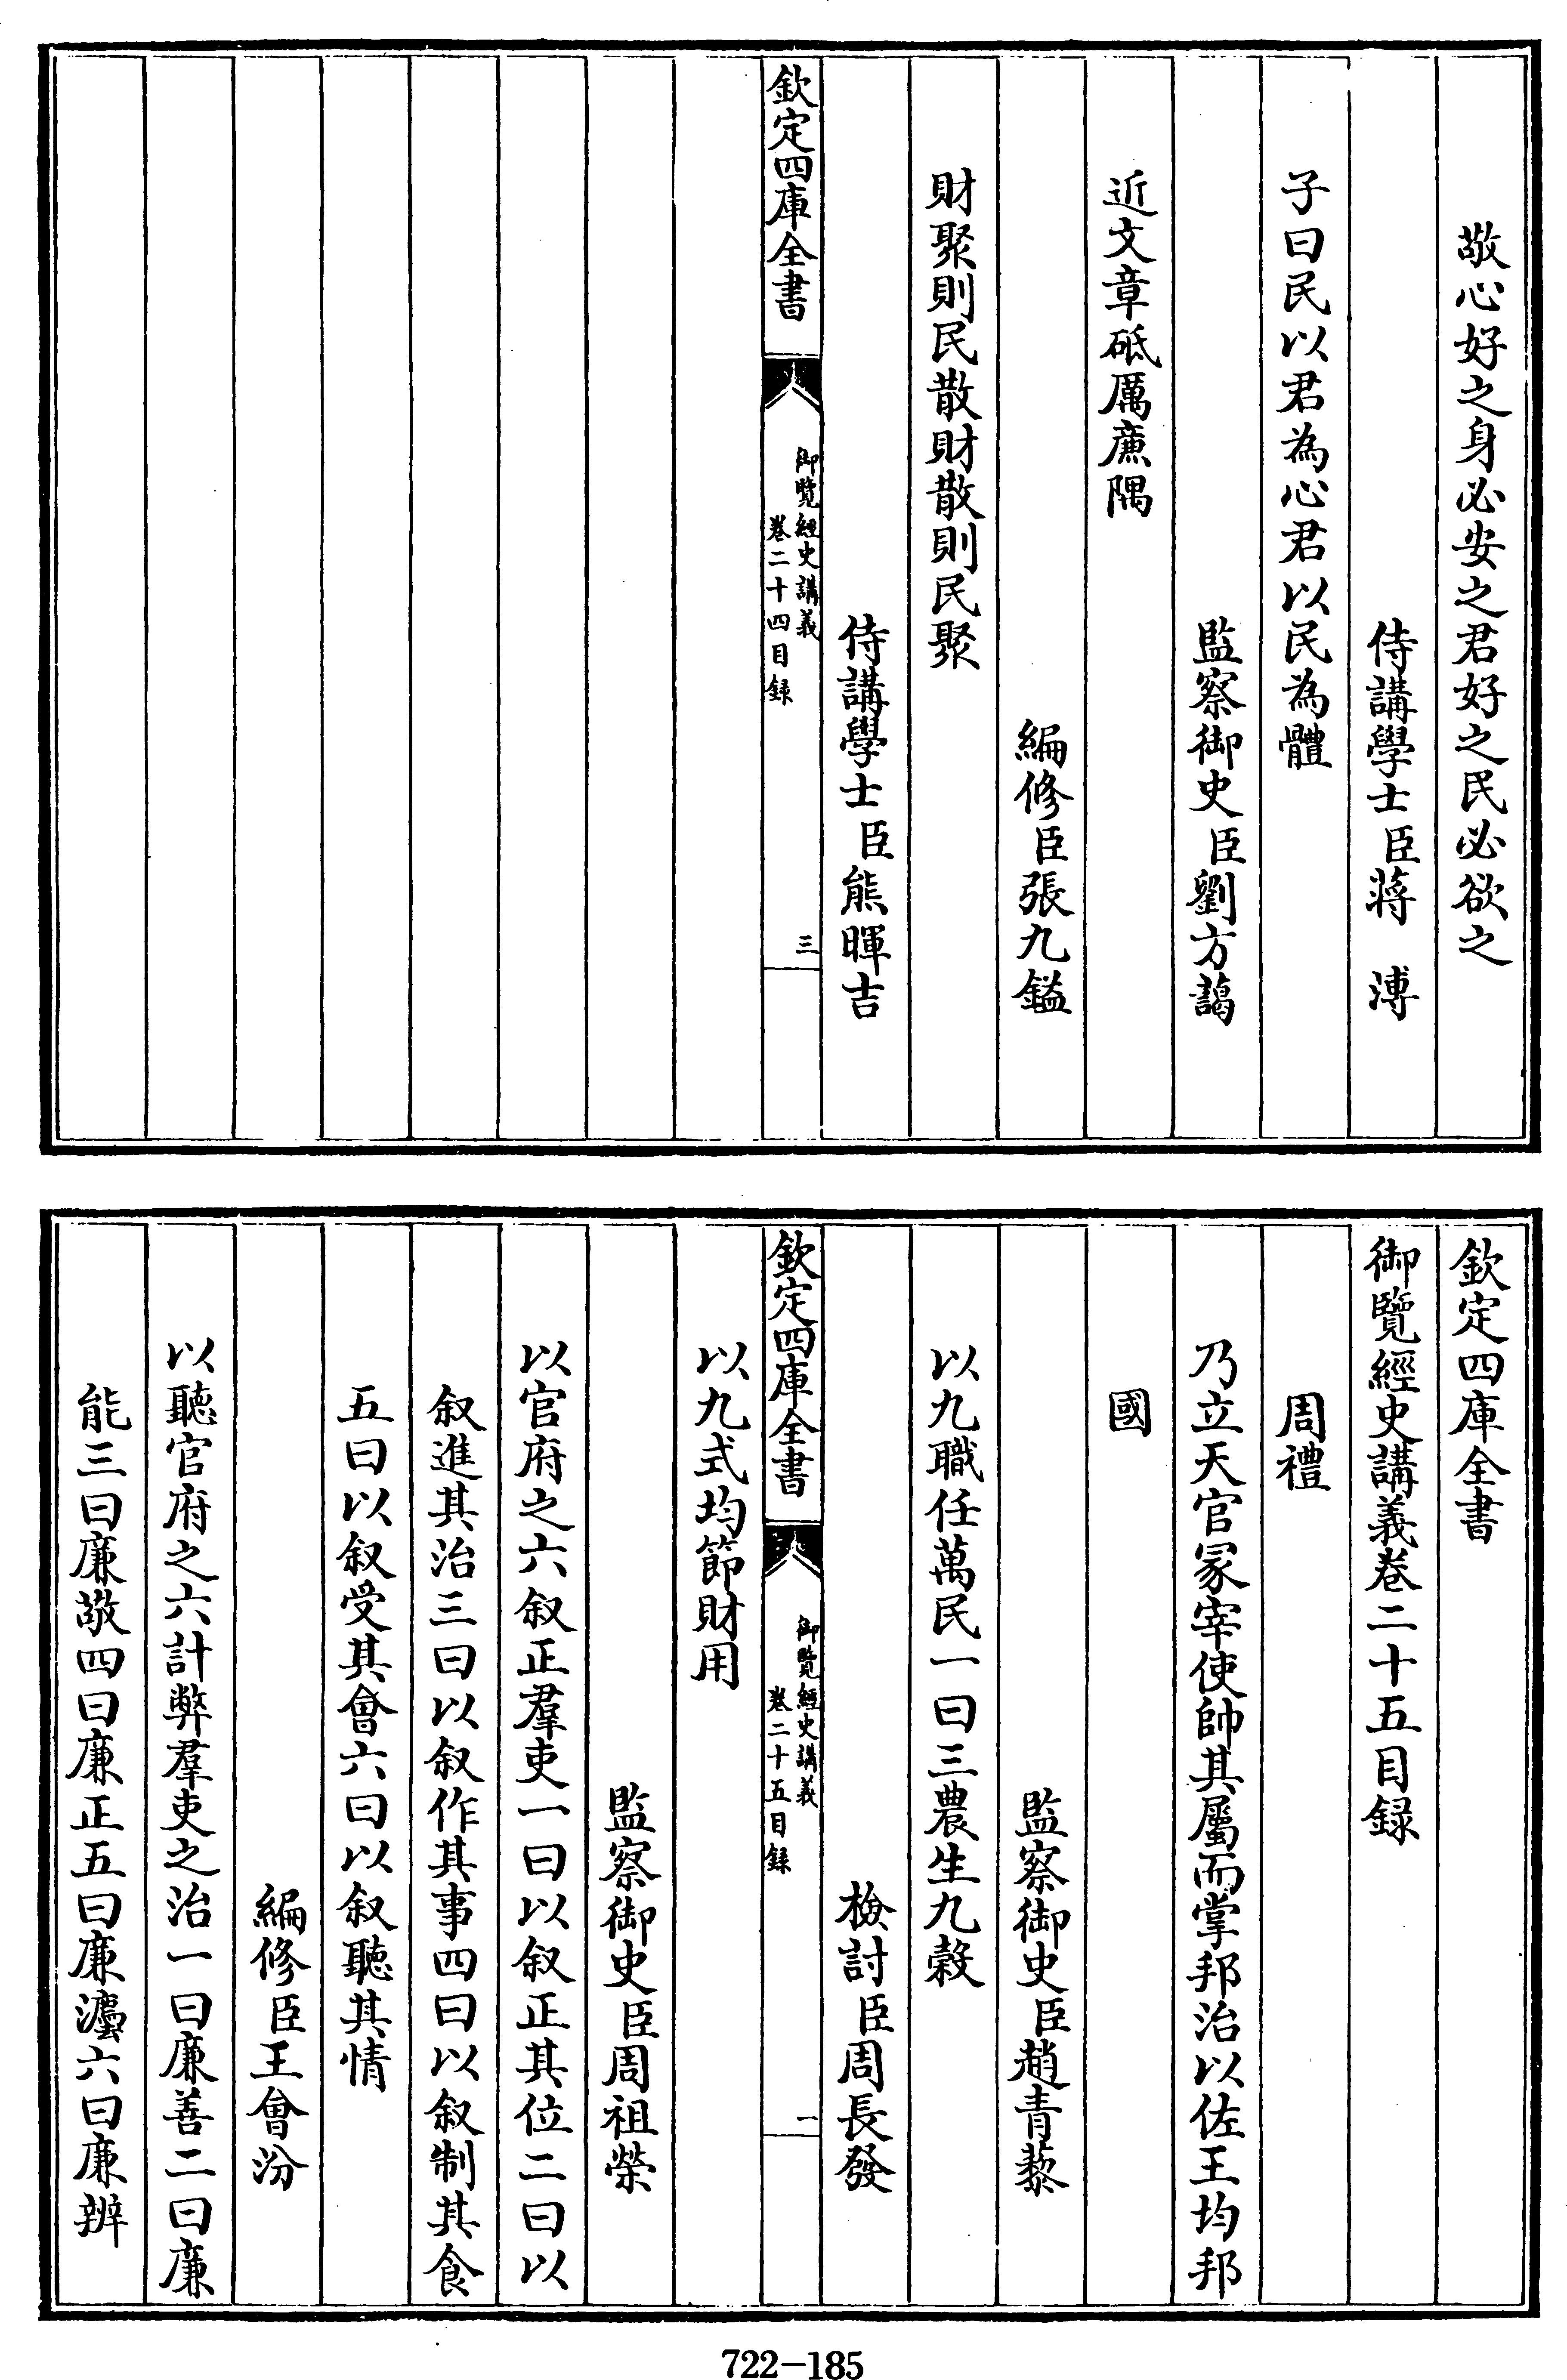 敬心好之身必安之君好之民必欲之
侍講學士臣蔣 溥
子曰民以君為心君以民為體
監察御史臣劉方藹
近文章砥厲廉隅
編修臣張九鎰
財聚則民散財散則民聚
侍講學士臣熊暉吉
欽定四庫全書
御覽經史講義
卷二十四目録
三
欽定四庫全書
御覽經史講義卷二十五目録
周禮
乃立天官冢宰使帥其屬而掌邦治以佐王均邦
國
監察御史臣趙青藜
以九職任萬民一曰三農生九穀
檢討臣周長發
欽定四庫全書
御覽經史講義
卷二十五目録
一
以九式均節財用
監察御史臣周祖榮
以官府之六叙正羣吏一曰以叙正其位二曰以
叙進其治三曰以叙作其事四曰以叙制其食
五曰以叙受其會六曰以叙聽其情
編修臣王會汾
以聽官府之六計弊羣吏之治一曰廉善二曰廉
能三曰廉敬四曰廉正五曰廉灋六曰廉辨
722-185